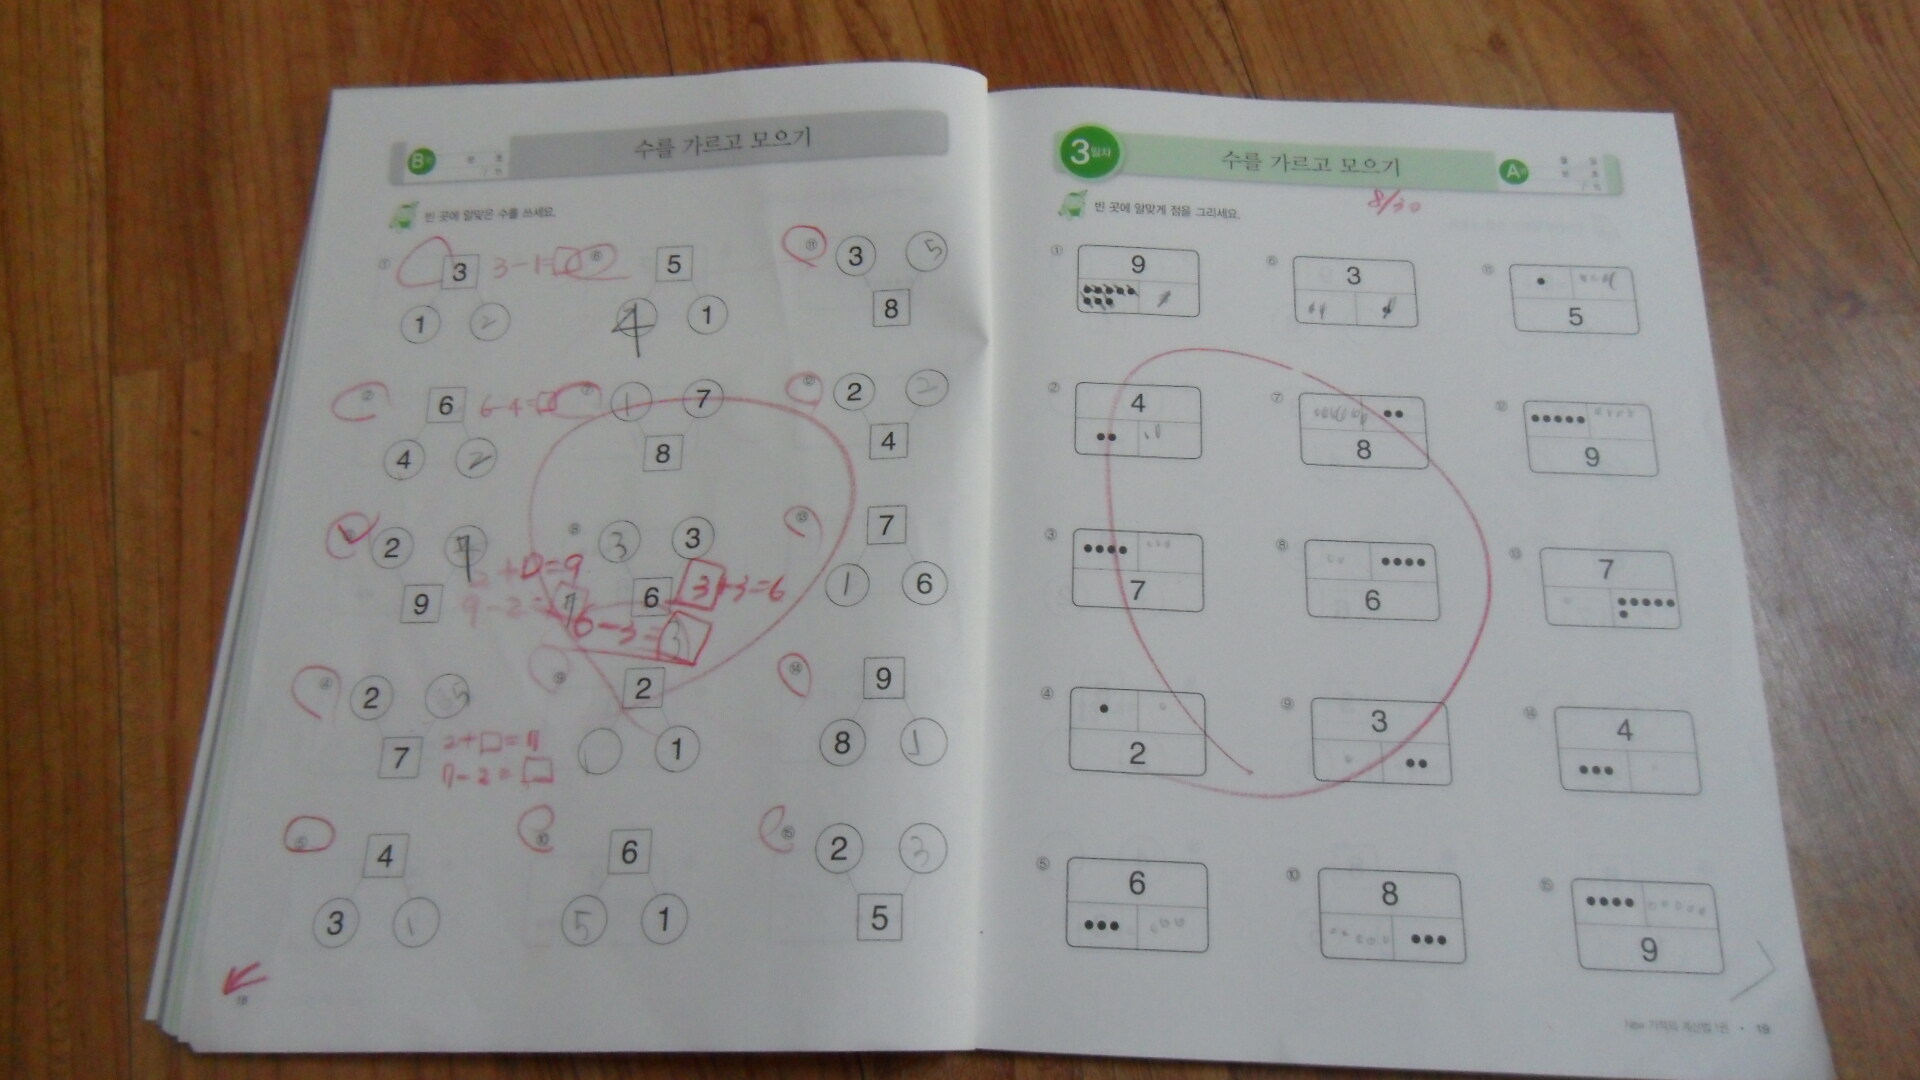 B
수를 가르고 모으기
빈 곳에 알맞은 수를 쓰세요.
① 3 3-1=□
1 2
⑥ 5
4 1
⑪ 3 5
8
② 6 6-4=□
4 2
⑦ 1 7
8
⑫ 2 2
4
③ 2 7
9
2+□=9
9-2=7
⑧ 3 3
6
3+3=6
6-3=3
⑬ 7
1 6
④ 2 5
7
2+□=7
7-2=□
⑨ 2
1
⑭ 9
8 1
⑤ 4
3 1
⑩ 6
5 1
⑮ 2 3
5
18
3일차
수를 가르고 모으기
A
8/30
빈 곳에 알맞게 점을 그리세요.
① 9
⑥ 3
⑪ 5
② 4
⑦ 8
⑫ 9
③ 7
⑧ 6
⑬ 7
④ 2
⑨ 3
⑭ 4
⑤ 6
⑩ 8
⑮ 9
New 기적의 계산법 1권 · 19